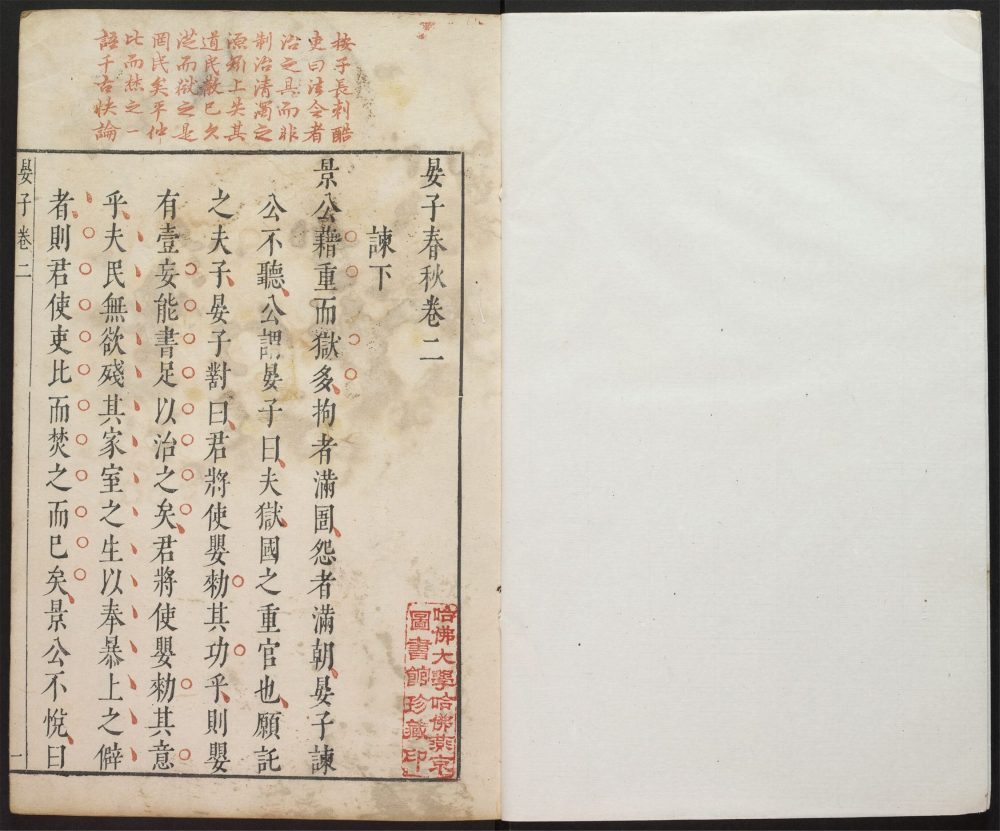 按子長刺酷
吏曰法令者
治之具而非
制治清濁之
源矧上失其
道民散已久
從而獄之是
罔民矣平仲
比而焚之一
語千古快論
晏子春秋卷二
諫下
景公藉重而獄多拘者滿圄怨者滿朝晏子諫
公不聽公謂晏子曰夫獄國之重官也願託
之夫子晏子對曰君將使嬰勑其功乎則嬰
有壹妄能書足以治之矣君將使嬰勑其意
乎夫民無欲殘其家室之生以奉暴上之僻
者則君使吏比而焚之而已矣景公不悅曰
晏子卷二
一
哈佛大學哈佛燕京
圖書館珍藏印